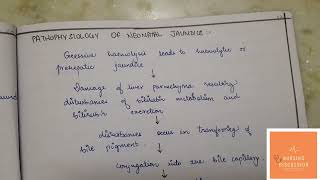 PATHOPHYSIOLOGY OF NEONATAL JAUNDICE :-
Excessive haemolysis leads to haemolytic or
prehepatic jaundice
↓
Damage of liver parenchyma resulting
disturbances of bilirubin metabolism and
bilirubin excretion
↓
disturbances occur in transferring of
bile pigment.
↓
conjugation into the bile capillary.
NURSING
DISCUSSION